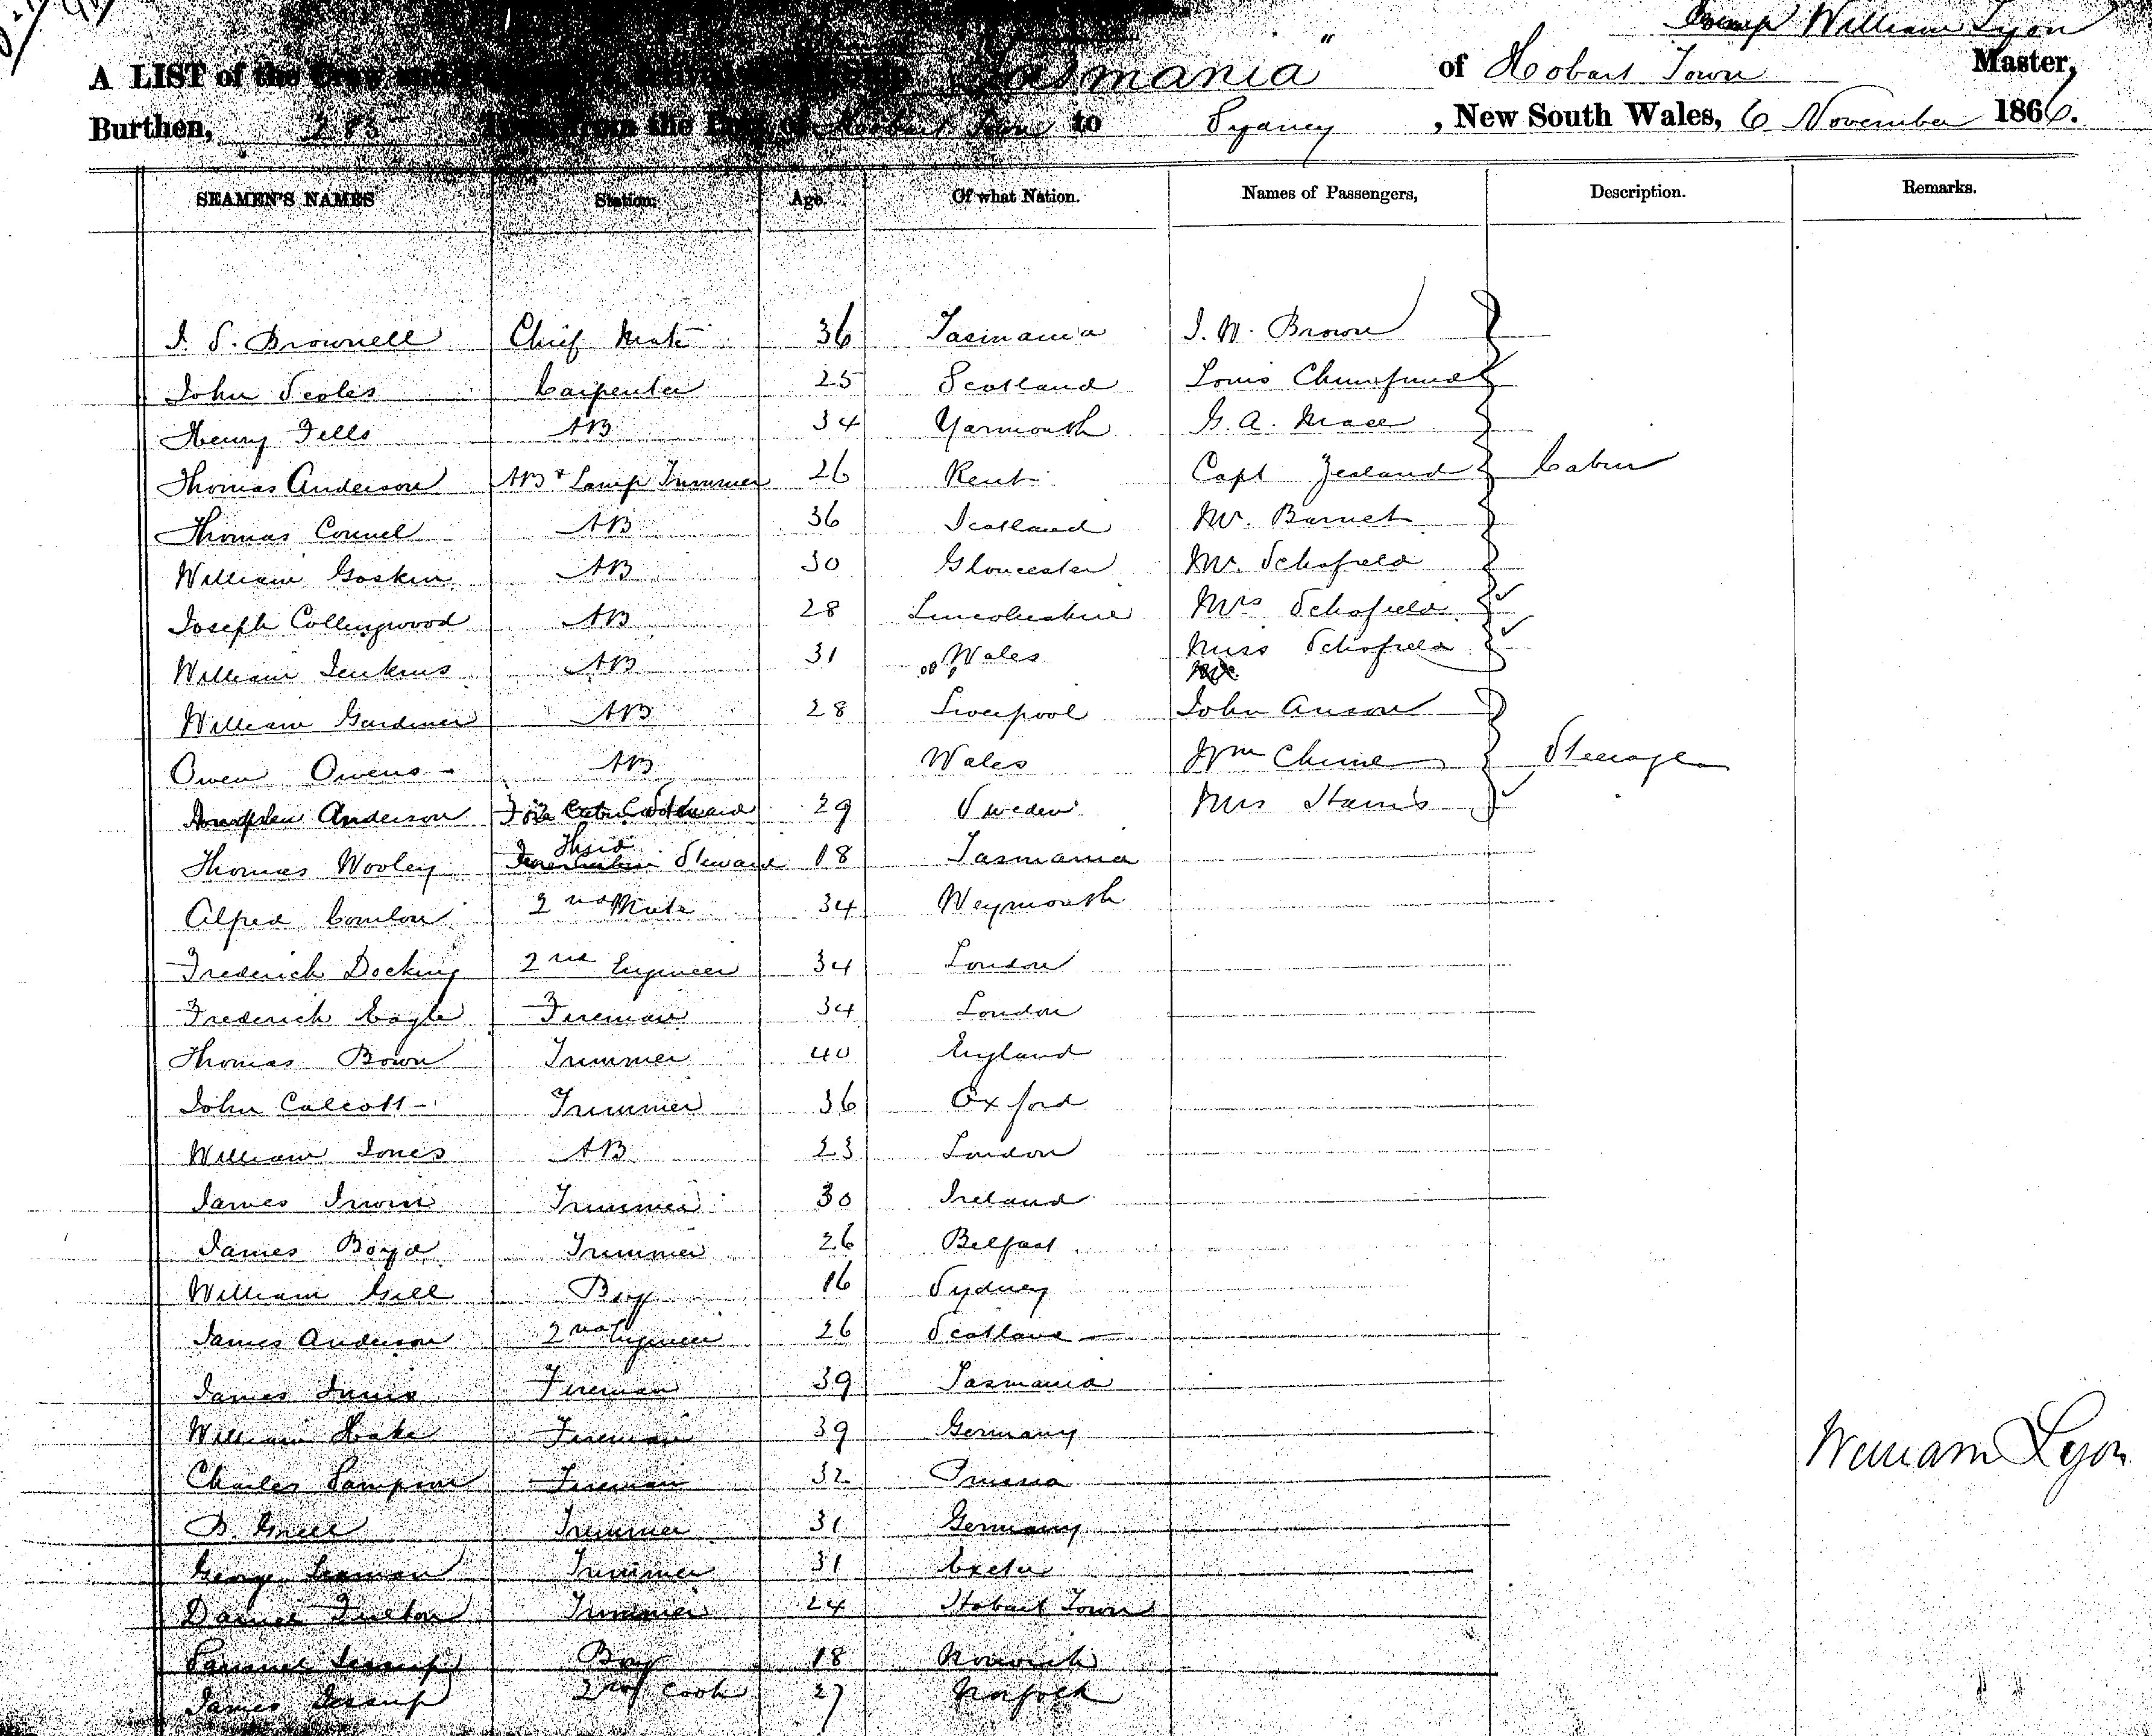 William Lyon
A LIST of the Crew and "Tasmania" of Hobart Town Master,
Burthen, 285 Tons from the Port of Hobart Town to Sydney, New South Wales, 6 November 1866.
SEAMEN'S NAMES Station. Age. Of what Nation. Names of Passengers, Description. Remarks.
J. S. Brownell Chief Mate 36 Tasmania J. W. Brown
John Scoles Carpenter 25 Scotland Louis
Henry Fells AB 34 Yarmouth G. A. Mace
Thomas Anderson AB & Lamp Trimmer 26 Kent Capt Zealand Cabin
Thomas Connel AB 36 Scotland Mr. Barnet
William Goskin AB 30 Gloucester Mr. Schofield
Joseph Collingwood AB 28 Lincolnshire Mrs Schofield
William Jenkins AB 31 Wales Miss Schofield
William Gardiner AB 28 Liverpool John Anson
Owen Owens AB Wales Wm Steerage
Anderson Fore Cabin Steward 29 Sweden Mrs Harris
Thomas Wooley Third Steward 18 Tasmania
Alfred 2nd Mate 34 Weymouth
Frederick Docking 2nd Engineer 34 London
Frederick Cagle Fireman 34 London
Thomas Bown Trimmer 40 England
John Calcott Trimmer 36 Oxford
William Jones AB 23 London
James Irwin Trimmer 30 Ireland
James Boyd Trimmer 26 Belfast
William Gill Boy 16 Sydney
James Anderson 2nd Engineer 26 Scotland
James Innis Fireman 39 Tasmania
William Hake Fireman 39 Germany
Charles Sampson Fireman 32 Prussia
William Lyon
Trimmer 31 Germany
George Seaman Trimmer 31 Exeter
Daniel Fulton Trimmer 24 Hobart Town
Samuel Jessup Boy 18 Norwich
James Jessup 2nd Cook 27 Norfolk